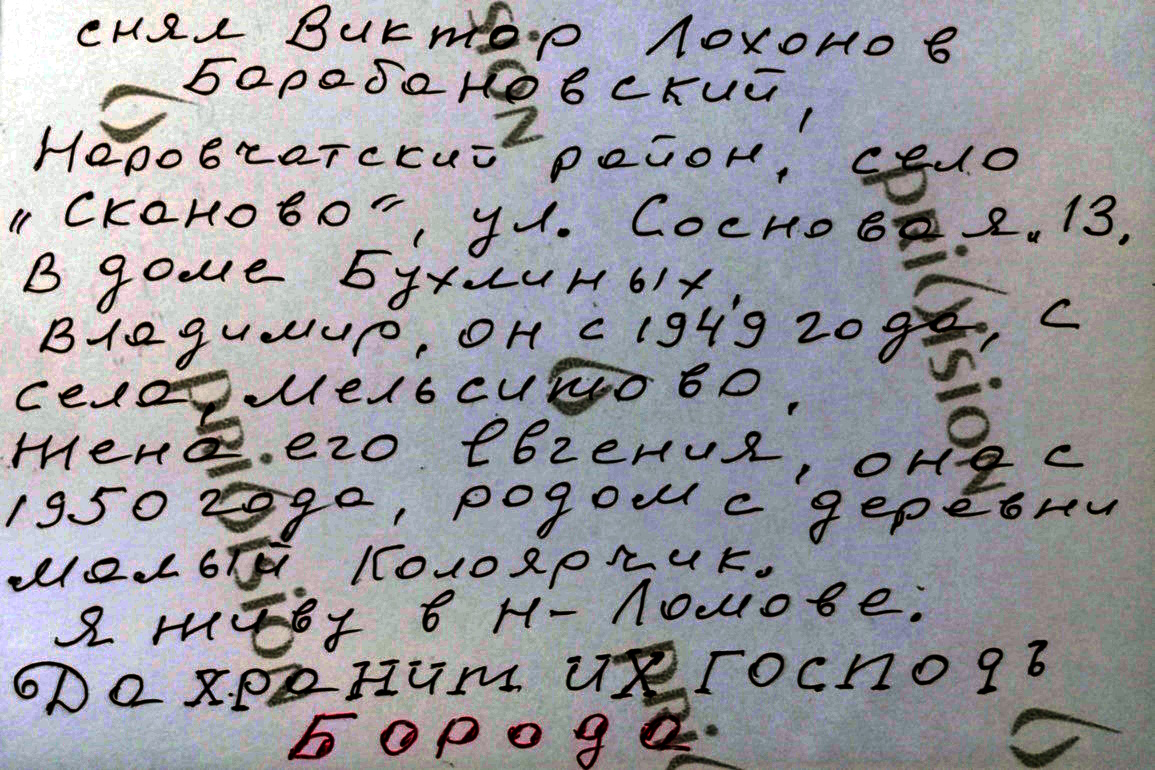 снял Виктор Лохонов
Барабановский,
Наровчатский район, село
"Сканово", ул. Сосновая. 13.
В доме Бухлиных,
Владимир, он с 1949 года, с
села, Мельситово,
Жена его Евгения, она с
1950 года, родом с деревни
малый Колоярчик.
Я живу в Н-Ломове.
Да хранит их Господь
Борода